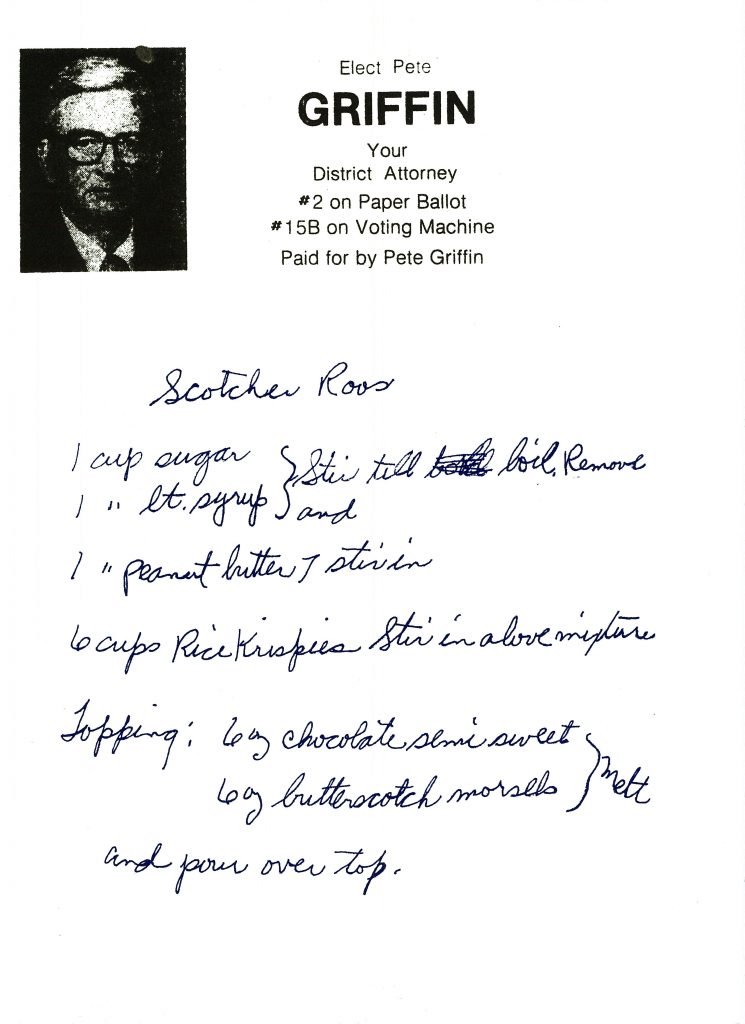 Elect Pete
GRIFFIN
Your
District Attorney
#2 on Paper Ballot
#15B on Voting Machine
Paid for by Pete Griffin
Scotcher Roos
1 cup sugar } Stir till boil. Remove
1 " lt. syrup } and
1 " peanut butter } stir in
6 cups Rice Krispies Stir in above mixture
Topping: 6 oz chocolate semi sweet } Melt
6 oz butterscotch morsels
and pour over top.